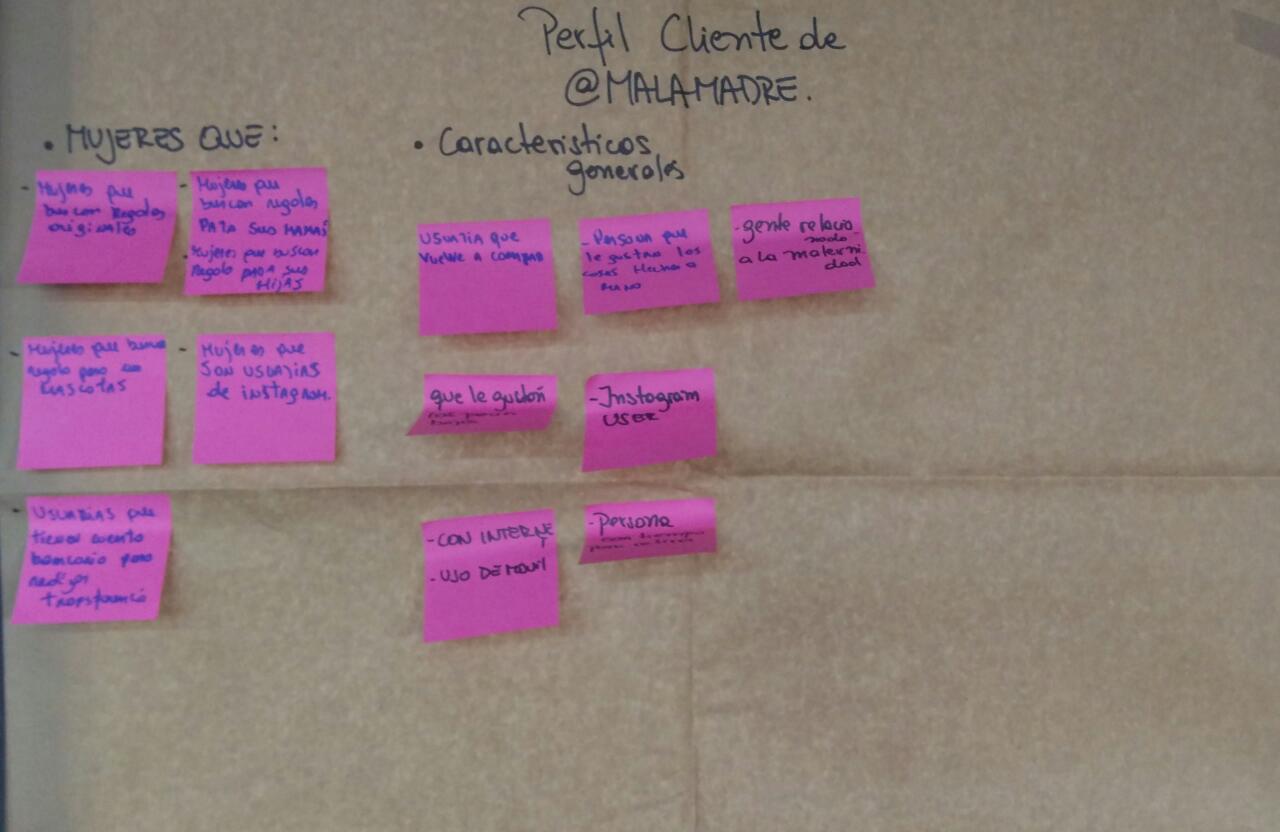 Perfil Cliente de
@MALAMADRE.
• MUJERES QUE:
- Mujeres que
buscan Regalos
originales
- Mujeres que
buscan regalos
PARA SUS MAMÁS
- Mujeres que buscan
Regalo PARA SUS
HIJAS
- Mujeres que busca
regalo para sus
MASCOTAS
- Mujeres que
SON USUARIAS
de INSTAGRAM.
- USUARIAS que
tienen cuenta
bancaria para
realizar
transferencia
• Caracteristicas
generales
USUARIA QUE
VUELVE A COMPRAR
- PERSONA que
le gustan las
cosas Hechas a
MANO
- gente relacio
nada
a la materni
dad
que le gustan
- Instagram
USER
- CON INTERNET
- USO DE MOVIL
- Persona
con tiempo